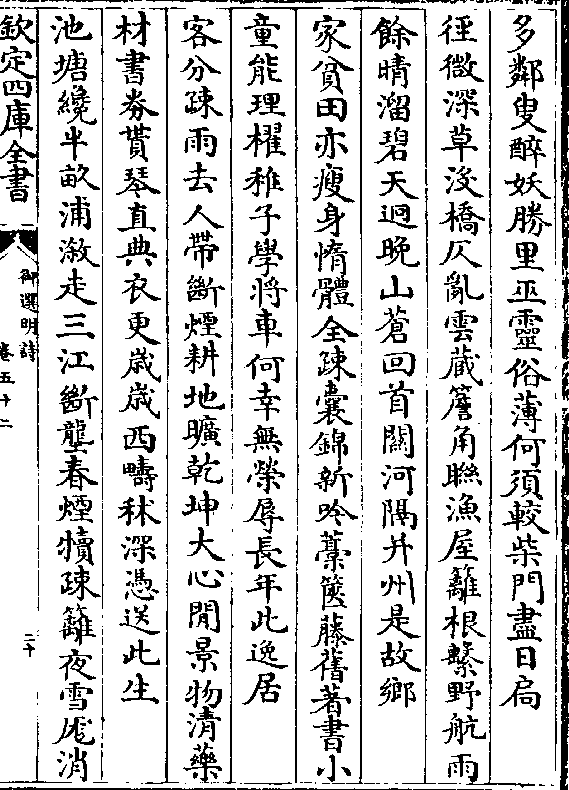 多鄰叟醉妖勝里巫靈俗薄何須較柴門盡日扃
徑微深草沒橋仄亂雲藏簷角聯漁屋籬根繫野航雨
餘晴溜碧天迥晚山蒼回首關河隔并州是故鄉
家貧田亦瘦身惰體全疎囊錦新吟藁篋縢舊著書小
童能理櫂稚子學將車何幸無榮辱長年此逸居
客分疎雨去人帶斷煙耕地曠乾坤大心閒景物清藥
材書券貰琴直典衣更歲歲西疇秫深憑送此生
池塘纔半畝浦漵走三江斷壟春煙犢疎籬夜雪尨消
欽定四庫全書
御選明詩
卷五十二
二十